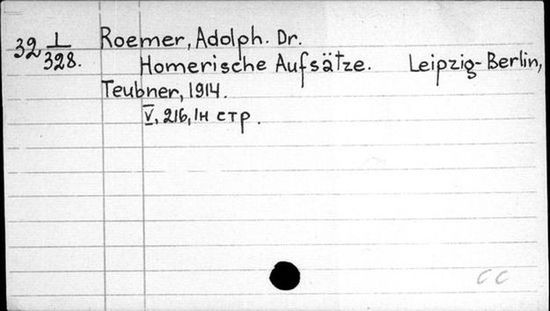 32 1/328. Roemer, Adolph. Dr.
Homerische Aufsätze. Leipzig-Berlin,
Teubner, 1914.
V, 216, 1н стр.
CC